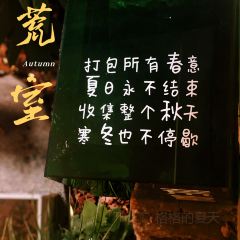 荒室
Autumn
打包所有春意
夏日永不结束
收集整个秋天
寒冬也不停歇
格格的夏天